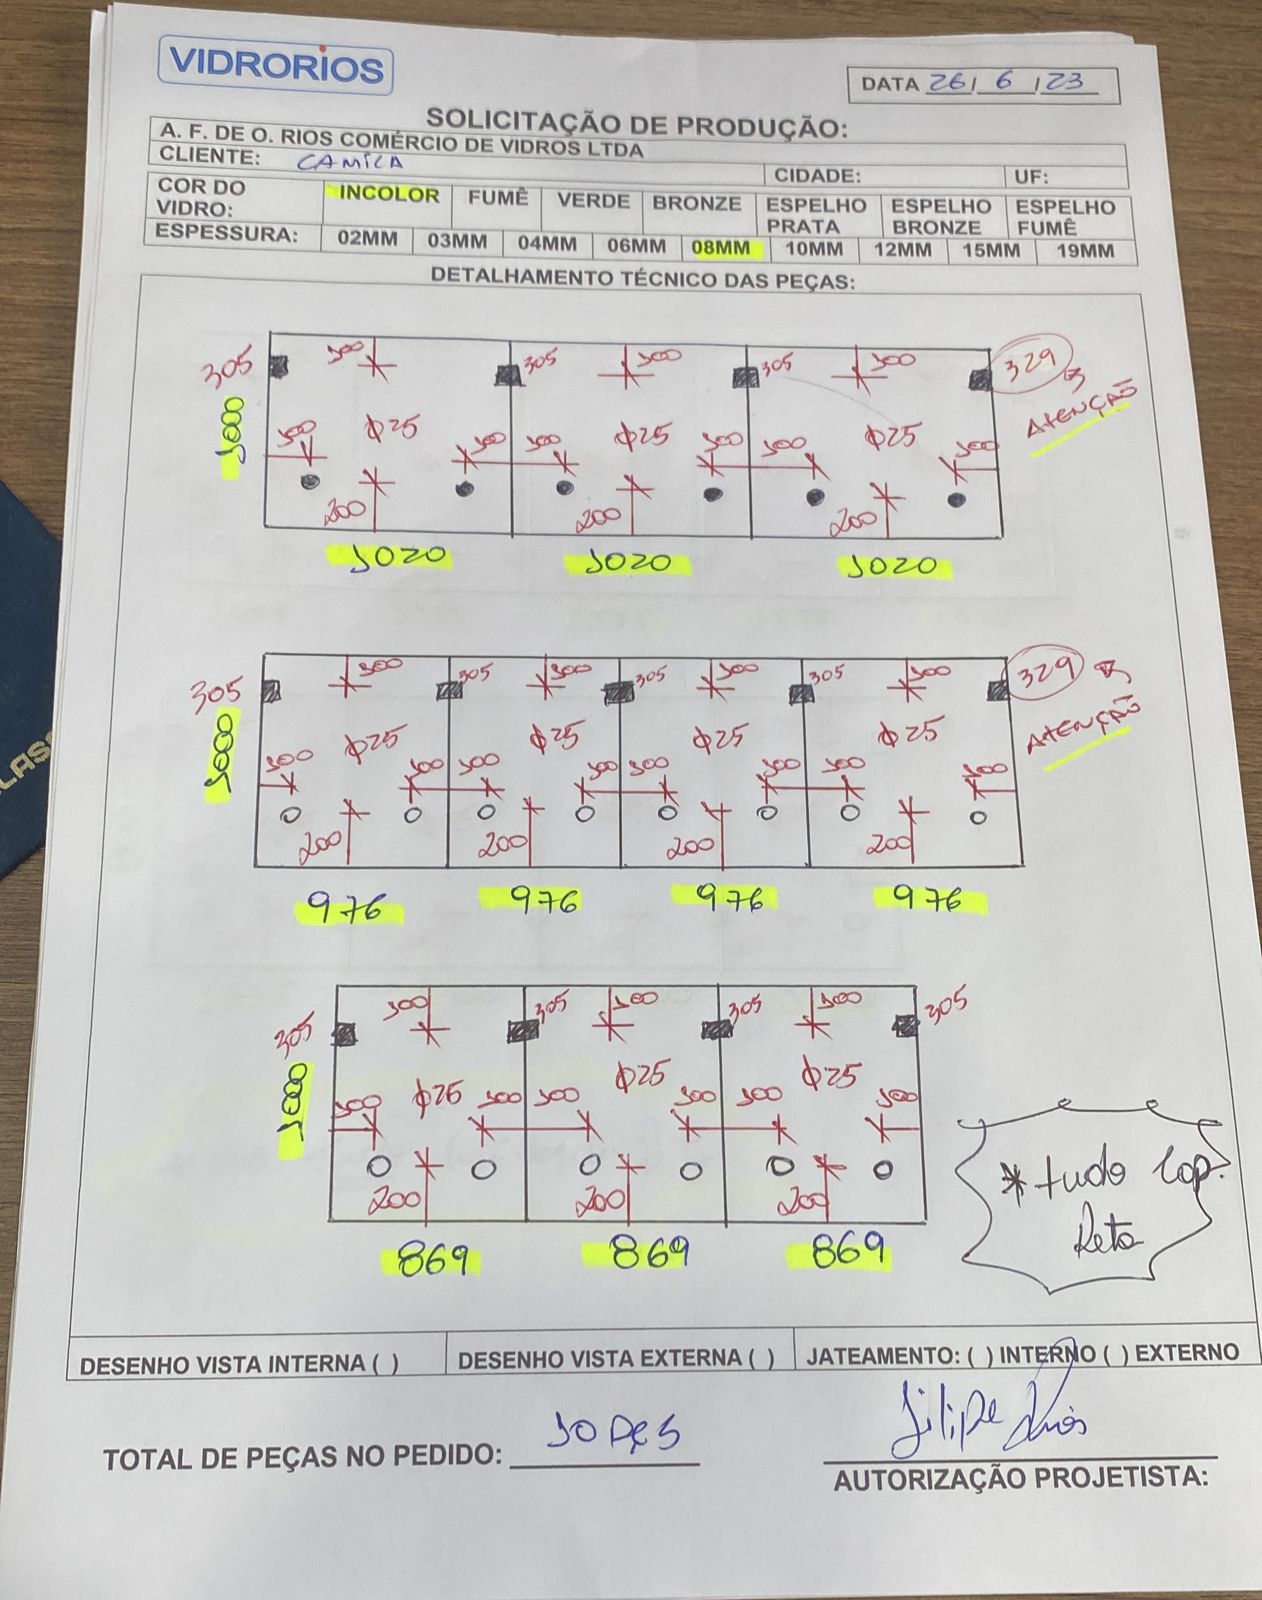 VIDRORIOS
DATA 26/ 6 /23
SOLICITAÇÃO DE PRODUÇÃO:
A. F. DE O. RIOS COMÉRCIO DE VIDROS LTDA
CLIENTE: CAMILA CIDADE: UF:
COR DO VIDRO: INCOLOR FUMÊ VERDE BRONZE ESPELHO PRATA ESPELHO BRONZE ESPELHO FUMÊ
ESPESSURA: 02MM 03MM 04MM 06MM 08MM 10MM 12MM 15MM 19MM
DETALHAMENTO TÉCNICO DAS PEÇAS:
305 100 305 100 305 100 329
ATENÇÃO
1000 100 Φ25 100 100 Φ25 100 100 Φ25 100
200 200 200
1020 1020 1020
305 100 305 100 305 100 305 100 329
ATENÇÃO
1000 Φ25 Φ25 Φ25 Φ25
100 100 100 100 100 100 100 100
200 200 200 200
976 976 976 976
305 100 305 100 305 100 305
1000 Φ25 Φ25 Φ25
100 100 100 100 100 100
200 200 200
869 869 869
* tudo Lap.
Reto
DESENHO VISTA INTERNA ( ) DESENHO VISTA EXTERNA ( ) JATEAMENTO: ( ) INTERNO ( ) EXTERNO
TOTAL DE PEÇAS NO PEDIDO: 10 PÇS
Filipe Rios
AUTORIZAÇÃO PROJETISTA: